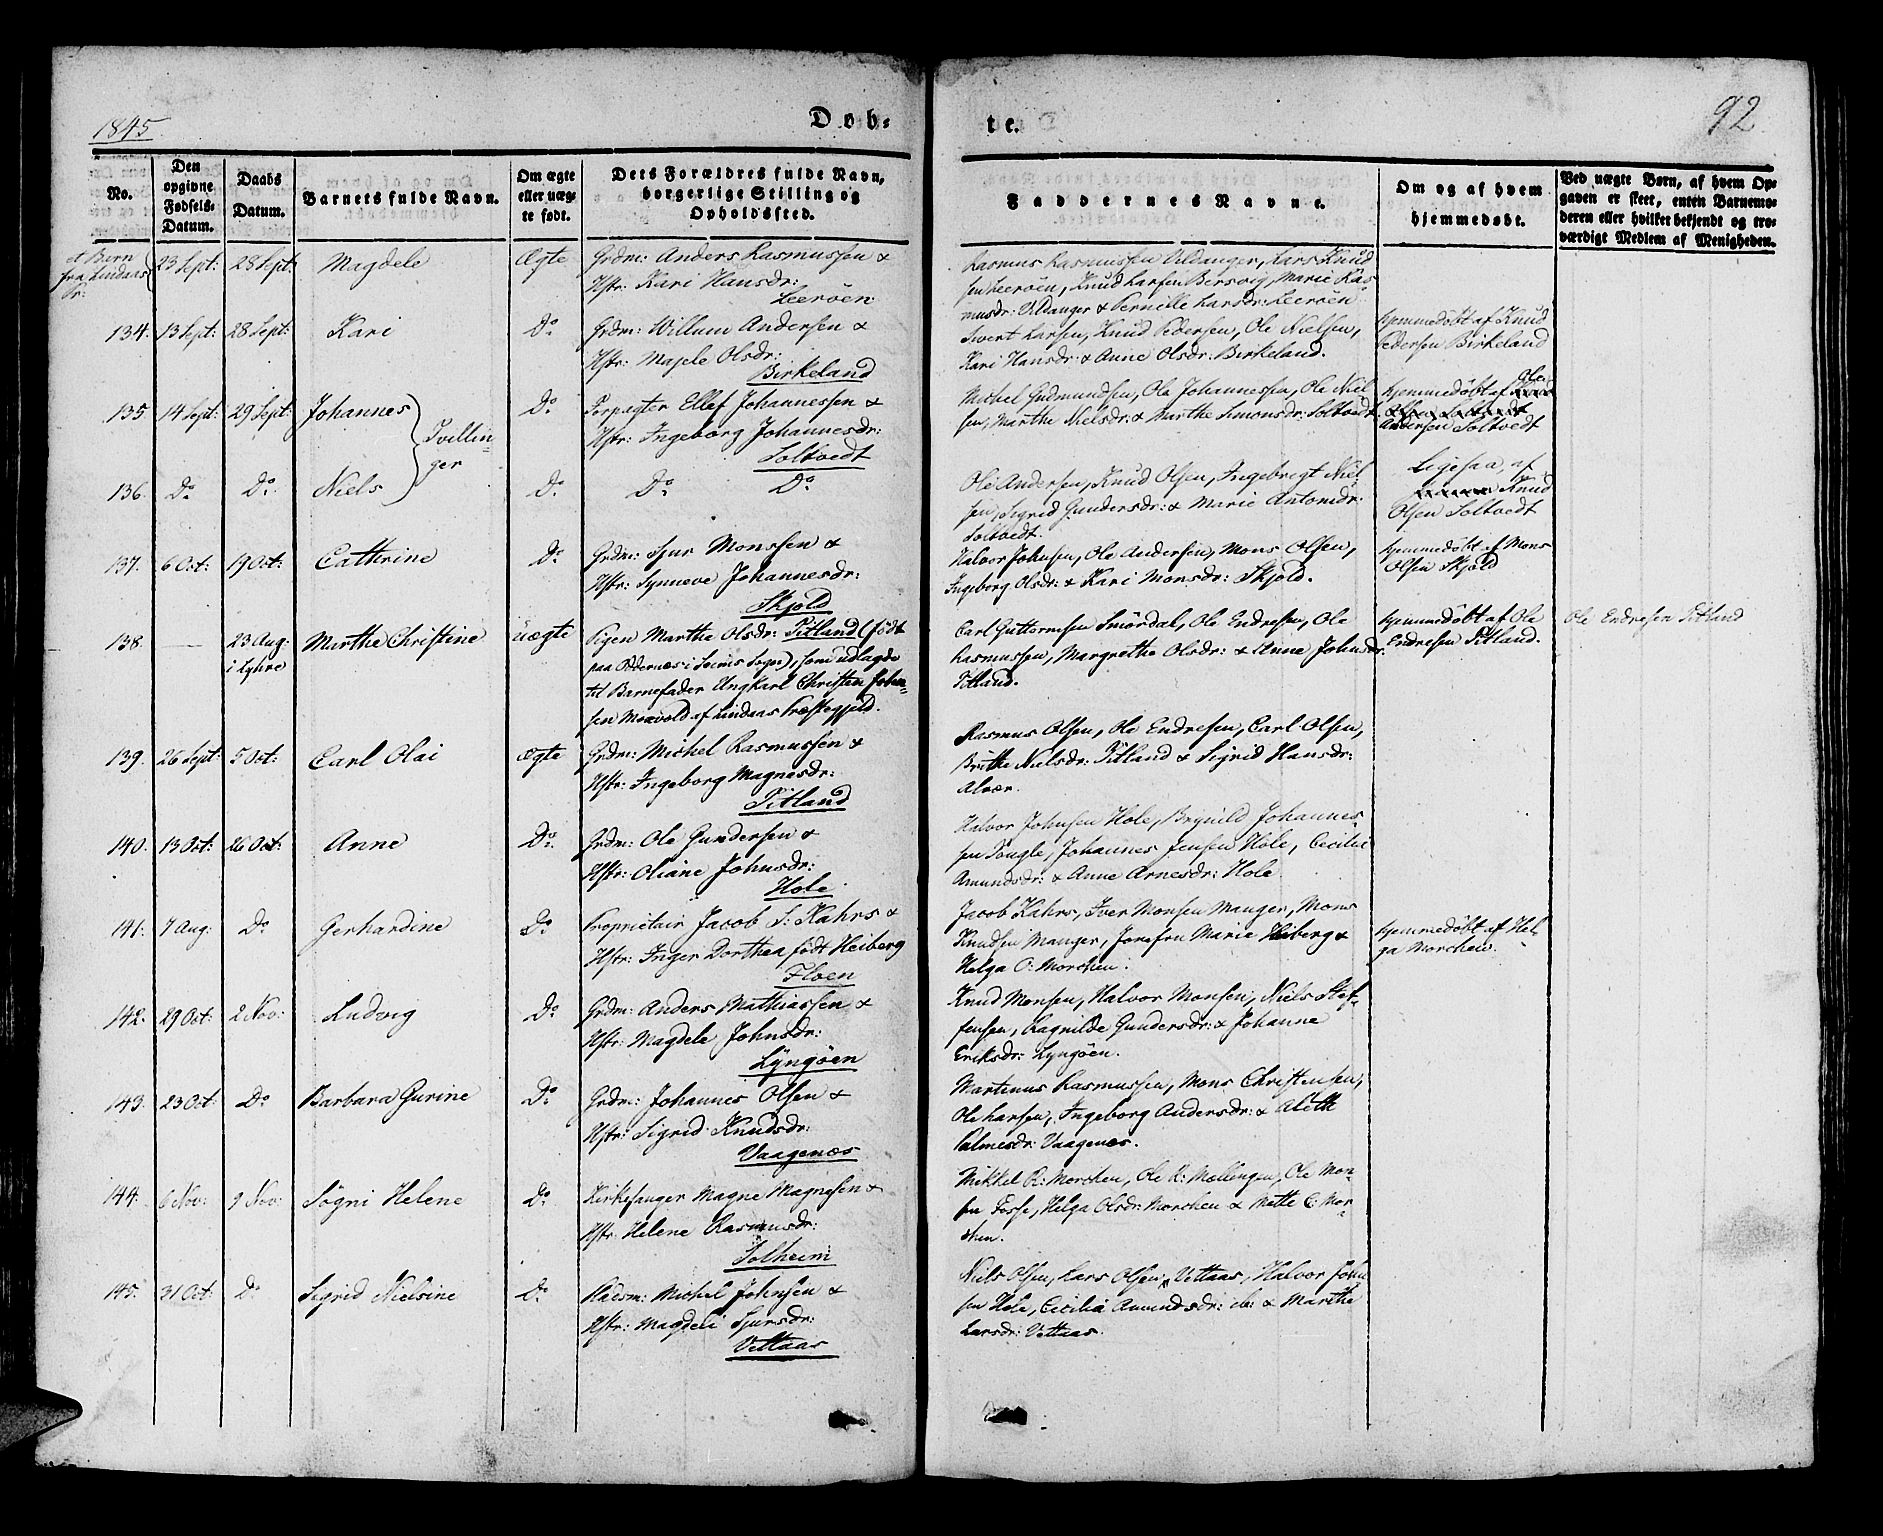 1845
Döb-
te.
92
No.
Den opgivne Fødsels-Datum.
Daabs Datum.
Barnets fulde Navn.
Om ægte eller uægte født.
Dets Forældres fulde Navn, borgerlige Stilling og Opholdssted.
Faddernes Navne.
Om og af hvem hjemmedøbt.
Ved uægte Børn, af hvem Opgaven er skeet, enten Barnemoderen eller hvilket bekjendt og troværdigt Medlem af Menigheden.
et Barn fra Lindaas Pr: 23 Sept: 28 Sept: Magdele Ægte Grdm: Anders Rasmussen &
Hstr: Kari Hansdr:
Leeröen
Rasmus Rasmussen Vildanger, Lars Knud
sen Leeröen, Knud Larsen Bersvig, Marie Ras
musdr: Vildanger & Pernille Larsdr: Leeröen
134. 13 Sept: 28 Sept: Kari Do Grdm: Willum Andersen &
Hstr: Majele Olsdr:
Birkeland
Sivert Larsen, Knud Pedersen, Ole Nielsen,
Kari Hansdr: & Anne Olsdr: Birkeland.
hjemmedöbt af Knud
Pedersen Birkeland
135. 14 Sept: 29 Sept: Johannes Do Forpagter Ellef Johannessen &
Hstr: Ingeborg Johannesdr:
Soltvedt
Tvillin-
ger
Michel Gudmundsen, Ole Johannessen, Ole Niel
sen, Marthe Nielsdr: & Marthe Simonsdr: Soltvedt
hjemmedöbt af Ole
Andersen Soltvedt
136. Do Do. Niels Do. Do. Do.
Ole Andersen, Knud Olsen, Ingebrigt Niel-
sen, Sigrid Gundersdr: & Marie Antonidr:
Soltvedt.
Ligesaa, af
Knud
Olsen Soltvedt
137. 6 Oct: 19 Oct: Cathrine Do. Grdm: Sjur Monssen &
Hstr: Synneve Johannesdr:
Skjold
Halvor Johnsen, Ole Andersen, Mons Olsen,
Ingeborg Olsdr: & Kari Monsdr: Skjold.
hjemmedöbt af Mons
Olsen Skjold
138. — 23 Aug. i Lyhre Marthe Christine uægte Pigen Marthe Olsdr: Titland (født
paa Oddernæs i Seims Sogn), som udlagde
til Barnefader Ungkarl Christen John-
sen Monvold af Lindaas Præstegjeld.
Carl Guttormsen Smördal, Ole Endresen, Ole
Rasmussen, Margrethe Olsdr: & Anne Johnsdr:
Titland.
hjemmedöbt af Ole
Endresen Titland.
Ole Endresen Titland
139. 26 Sept: 5 Oct: Carl Olai ægte Grdm: Michel Rasmussen &
Hstr: Ingeborg Magnesdr:
Titland
Rasmus Olsen, Ole Endresen, Carl Olsen,
Brithe Nielsdr: Titland & Sigrid Hansdr:
Alvær.
140. 13 Oct: 26 Oct: Anne Do. Grdm: Ole Gundersen &
Hstr: Oliane Johnsdr:
Hole
Halvor Johnsen Hole, Brynild Johannes-
sen Tougle, Johannes Jensen Hole, Cecilie
Amundsdr: & Anne Arnesdr: Hole
141. 7 Aug: Do Gerhardine Do. Proprietair Jacob S: Kahrs &
Hstr: Inger Dorthea, født Heiberg
Floen
Jacob Kahrs, Iver Monsen Manger, Mons
Knudsen Manger, Jomfru Marie Heiberg &
Helga O: Morchen.
hjemmedöbt af Hel-
ga Morchen.
142. 29 Oct: 2 Nov: Ludvig Do. Grdm: Anders Mathiassen &
Hstr: Magdele Johnsdr:
Lyngöen
Knud Monsen, Halvor Monsen, Niels Stef-
fensen, Ragnilde Gundersdr: & Johanne
Eriksdr: Lyngöen.
143. 23 Oct: Do Barbara Gurine Do. Grdm: Johannes Olsen &
Hstr: Sigrid Knudsdr:
Vaagenæs
Martinus Rasmussen, Mons Christensen,
Ole Larsen, Ingeborg Andersdr: & Aleth
Palmesdr: Vaagenæs.
144. 6 Nov: 9 Nov: Sögni Helene Do. Kirkesanger Magne Magnesen &
Hstr: Helene Rasmusdr:
Solheim
Mikkel R: Morchen, Ole K: Mællingen, Ole Mon-
sen Fosse, Helga Olsdr: Morchen & Mette C: Mor-
chen.
145. 31 Oct: Do Sigrid Nielsine Do. Pladsm: Michel Johnsen &
Hstr: Magdeli Sjursdr:
Vettaas
Niels Olsen, Lars Olsen, Vettaas, Halvor John
sen Hole, Cecilia Amundsdr: ib: & Marthe
Larsdr: Vettaas.